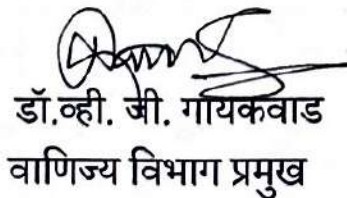 डॉ.व्ही. जी. गायकवाड
वाणिज्य विभाग प्रमुख